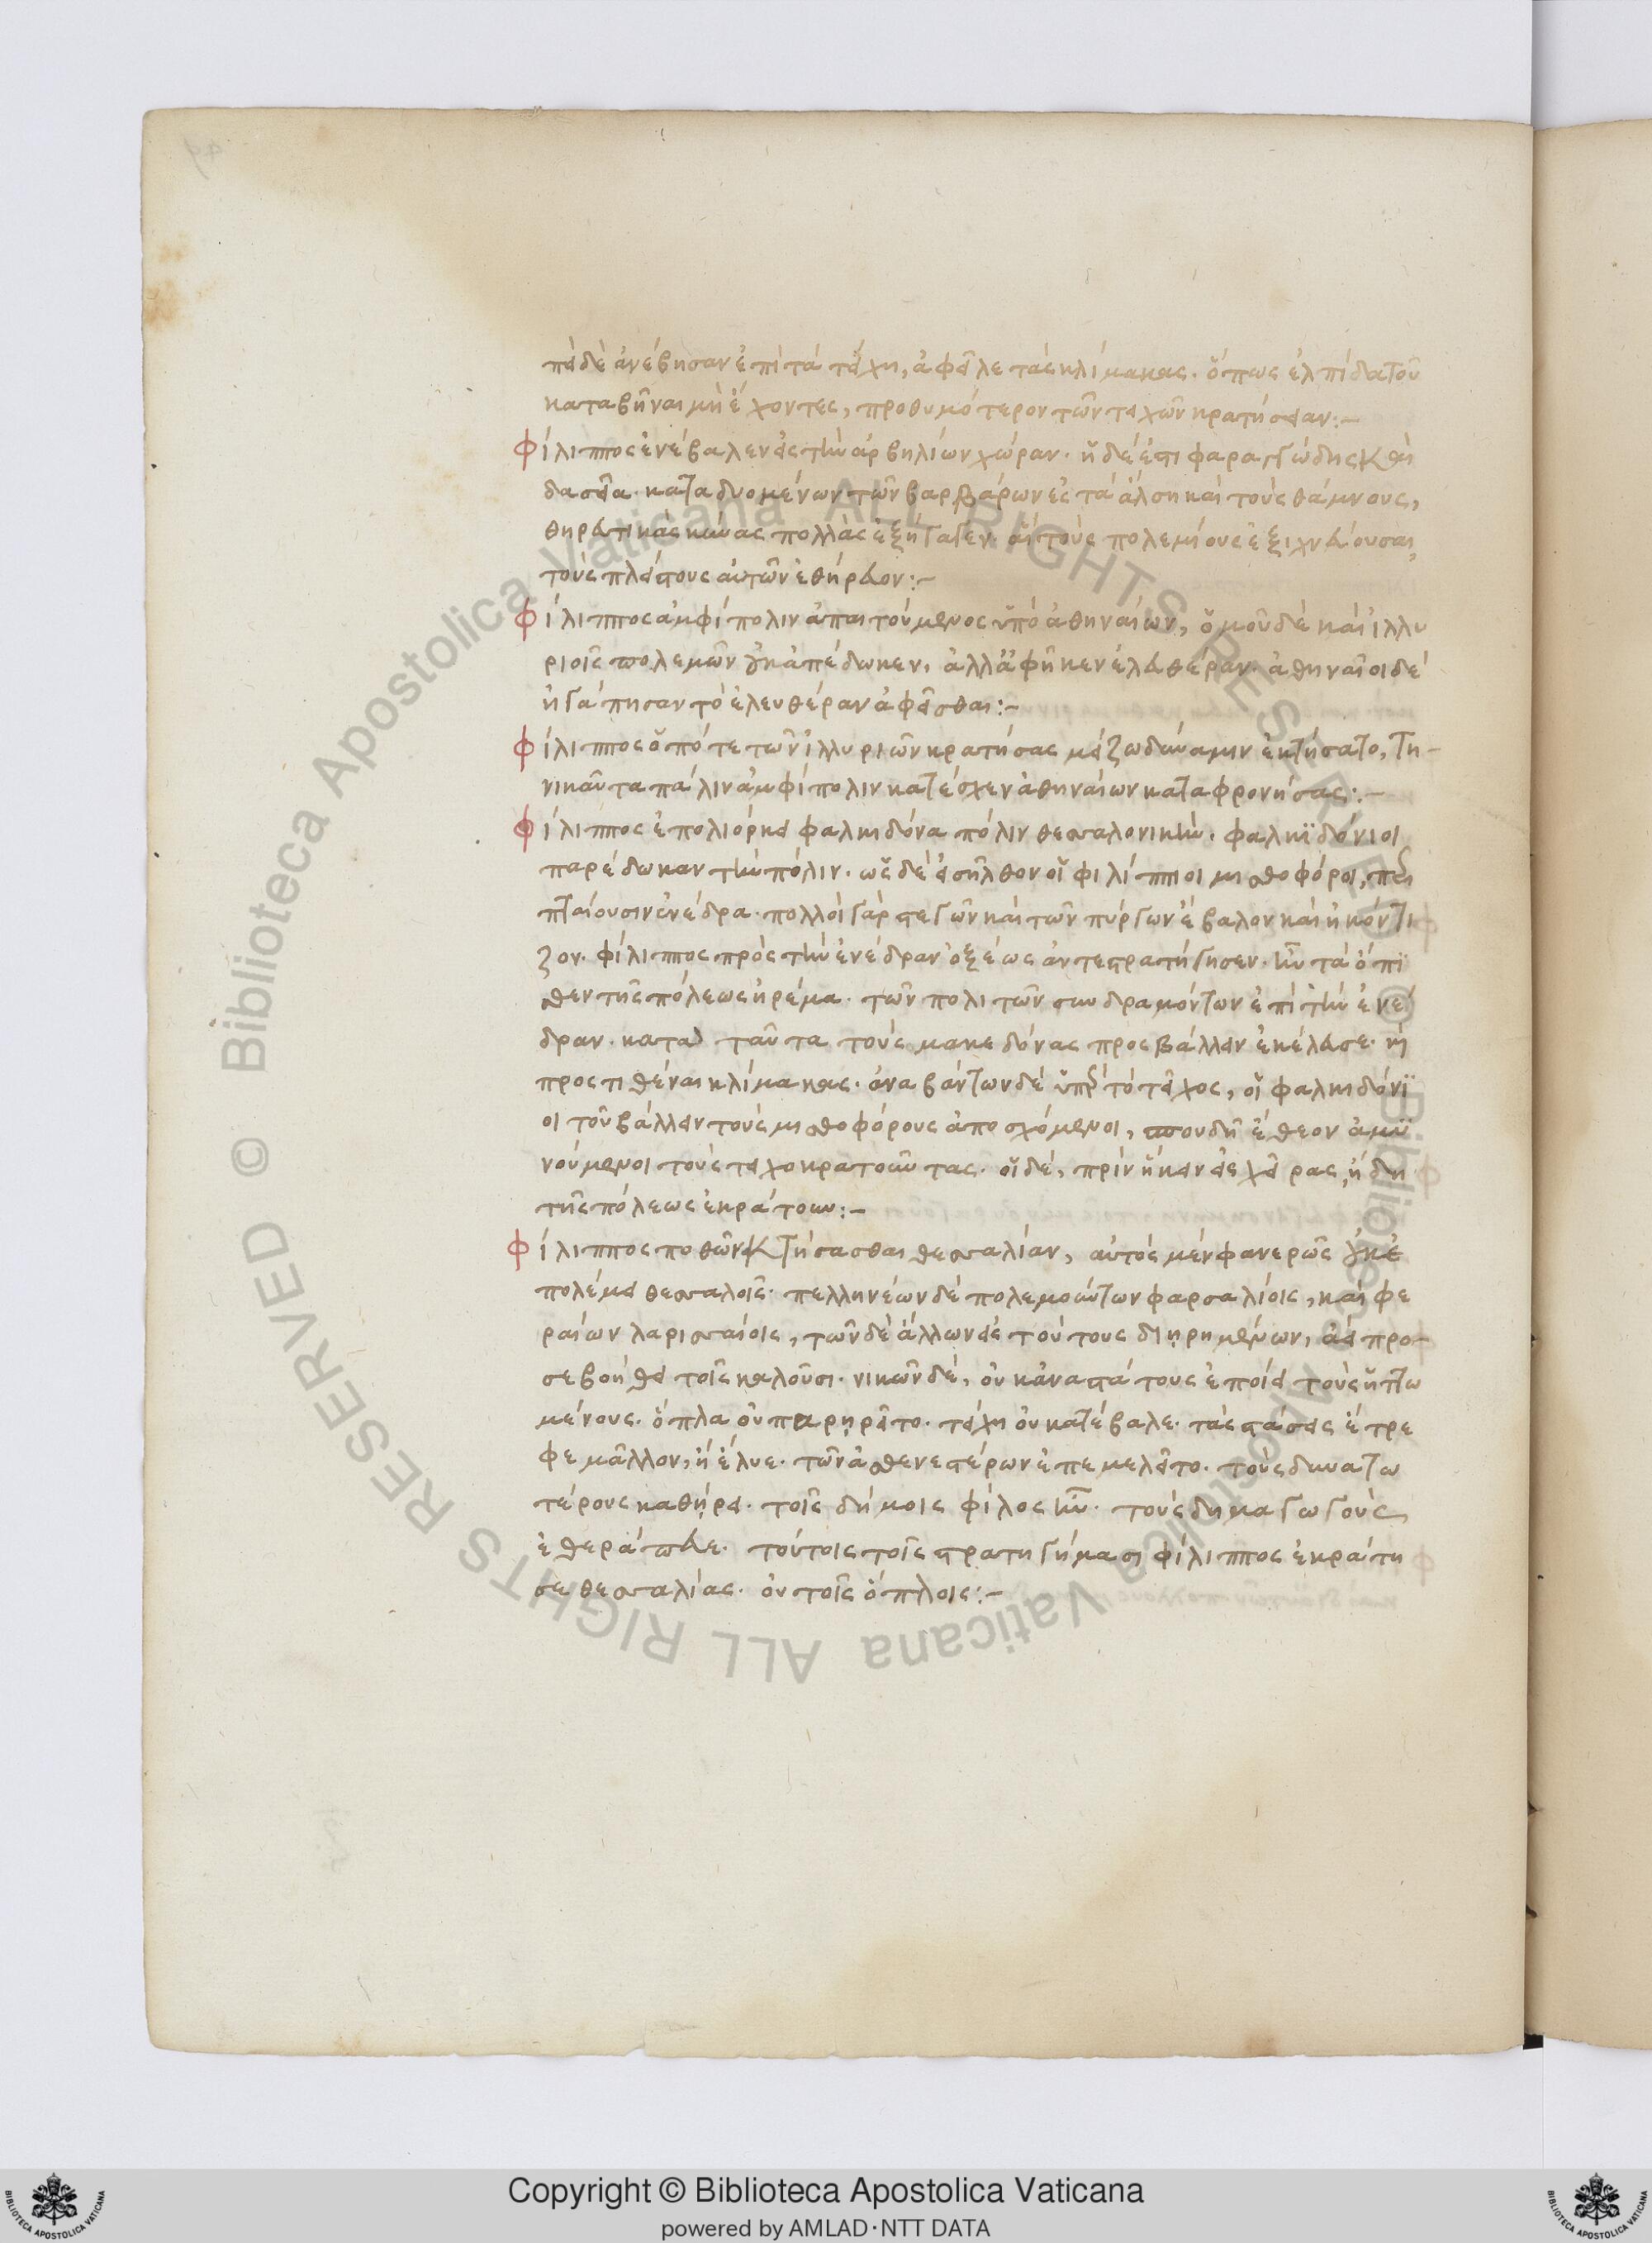 πεὶ δὲ ἀνέβησαν ἐπὶ τὰ τείχη, ἀφεῖλε τὰς κλίμακας. ὅπως ἐλπίδα τοῦ
καταβῆναι μὴ ἔχοντες, προθυμότερον τῶν τειχῶν κρατήσειαν:–
Φίλιππος ἐνέβαλεν εἰς τὴν ἀρβηλίων χώραν. ἡ δέ ἐστι φαραγγώδης καὶ
δασεῖα. καταδυομένων τῶν βαρβάρων ἐς τὰ ἄλση καὶ τοὺς θάμνους,
θηρευτικὰς κύνας πολλὰς ἐξήταζεν. αἳ τοὺς πολεμίους ἐξιχνεύουσαι,
τοὺς πλείστους αὐτῶν ἐθήρευον:–
Φίλιππος ἀμφίπολιν ἀπαιτούμενος ὑπὸ ἀθηναίων, ὁμοῦ δὲ καὶ ἰλλυ
ριοῖς πολεμῶν οὐκ ἀπέδωκεν, ἀλλ' ἀφῆκεν ἐλευθέραν. ἀθηναῖοι δὲ
ἠγάπησαν τὸ ἐλευθέραν ἀφεῖσθαι:–
Φίλιππος ὁπότε τῶν ἰλλυριῶν κρατήσας μείζω δύναμιν ἐκτήσατο, τη–
νικαῦτα πάλιν ἀμφίπολιν κατέσχεν ἀθηναίων καταφρονήσας:–
Φίλιππος ἐπολιόρκει φαλκηδόνα πόλιν θεσσαλονικὴν. φαλκηδόνιοι
παρέδωκαν τὴν πόλιν. ὡς δὲ εἰσῆλθον οἱ φιλίππιοι μισθοφόροι, περι
πταίουσιν ἐνέδρα. πολλοὶ γὰρ στεγῶν καὶ τῶν πύργων ἔβαλον καὶ ἠκόντι
ζον. φίλιππος πρὸς τὴν ἐνέδραν ὀξέως ἀντεστρατήγησεν. ἦν τὰ ὄπι
σθεν τῆς πόλεως ἠρέμα. τῶν πολιτῶν συνδραμόντων ἐπὶ τὴν ἐνέ
δραν. κατὰ ταῦτα τοὺς μακεδόνας προσβάλλειν ἐκέλευσε. καὶ
προστιθέναι κλίμακας. ἀναβάντων δὲ ὑπὲρ τὸ τεῖχος, οἱ φαλκηδόνι
οι τοῦ βάλλειν τοὺς μισθοφόρους ἀποσχόμενοι, σπουδῇ ἔθεον ἀμυ
νούμενοι τοὺς τειχοκρατοῦντας. οἱ δὲ, πρὶν ἥκειν εἰς χεῖρας, ἤδη
τῆς πόλεως ἐκράτουν:–
Φίλιππος ποθῶν κτήσασθαι θεσσαλίαν, αὐτὸς μὲν φανερῶς οὐκ ἐ
πολέμει θεσσαλοῖς. πελληνέων δὲ πολεμούντων φαρσαλίοις, καὶ φε
ραίων λαρισσαίοις, τῶν δὲ ἄλλων εἰς τούτους διῃρημένων, ἀεὶ προ–
σεβοήθει τοῖς καλοῦσι. νικῶν δὲ, οὐκ ἀναστάτους ἐποίει τοὺς ἡττω
μένους. ὅπλα οὐ παρῃρεῖτο. τείχη οὐ κατέβαλε. τὰς στάσεις ἔτρε
φε μᾶλλον, ἢ ἔλυε. τῶν ἀσθενεστέρων ἐπεμελεῖτο. τοὺς δυνατω
τέρους καθῄρει. τοῖς δήμοις φίλος ἦν. τοὺς δημαγωγοὺς
ἐθεράπευε. τούτοις τοῖς στρατηγήμασι φίλιππος ἐκράτη
σε θεσσαλίας. οὐ τοῖς ὅπλοις:–
Biblioteca Apostolica Vaticana ALL RIGHTS RESERVED ©
Biblioteca Apostolica Vaticana ALL RIGHTS RESERVED ©
Copyright © Biblioteca Apostolica Vaticana
powered by AMLAD·NTT DATA
BIBLIOTECA APOSTOLICA VATICANA
BIBLIOTECA APOSTOLICA VATICANA